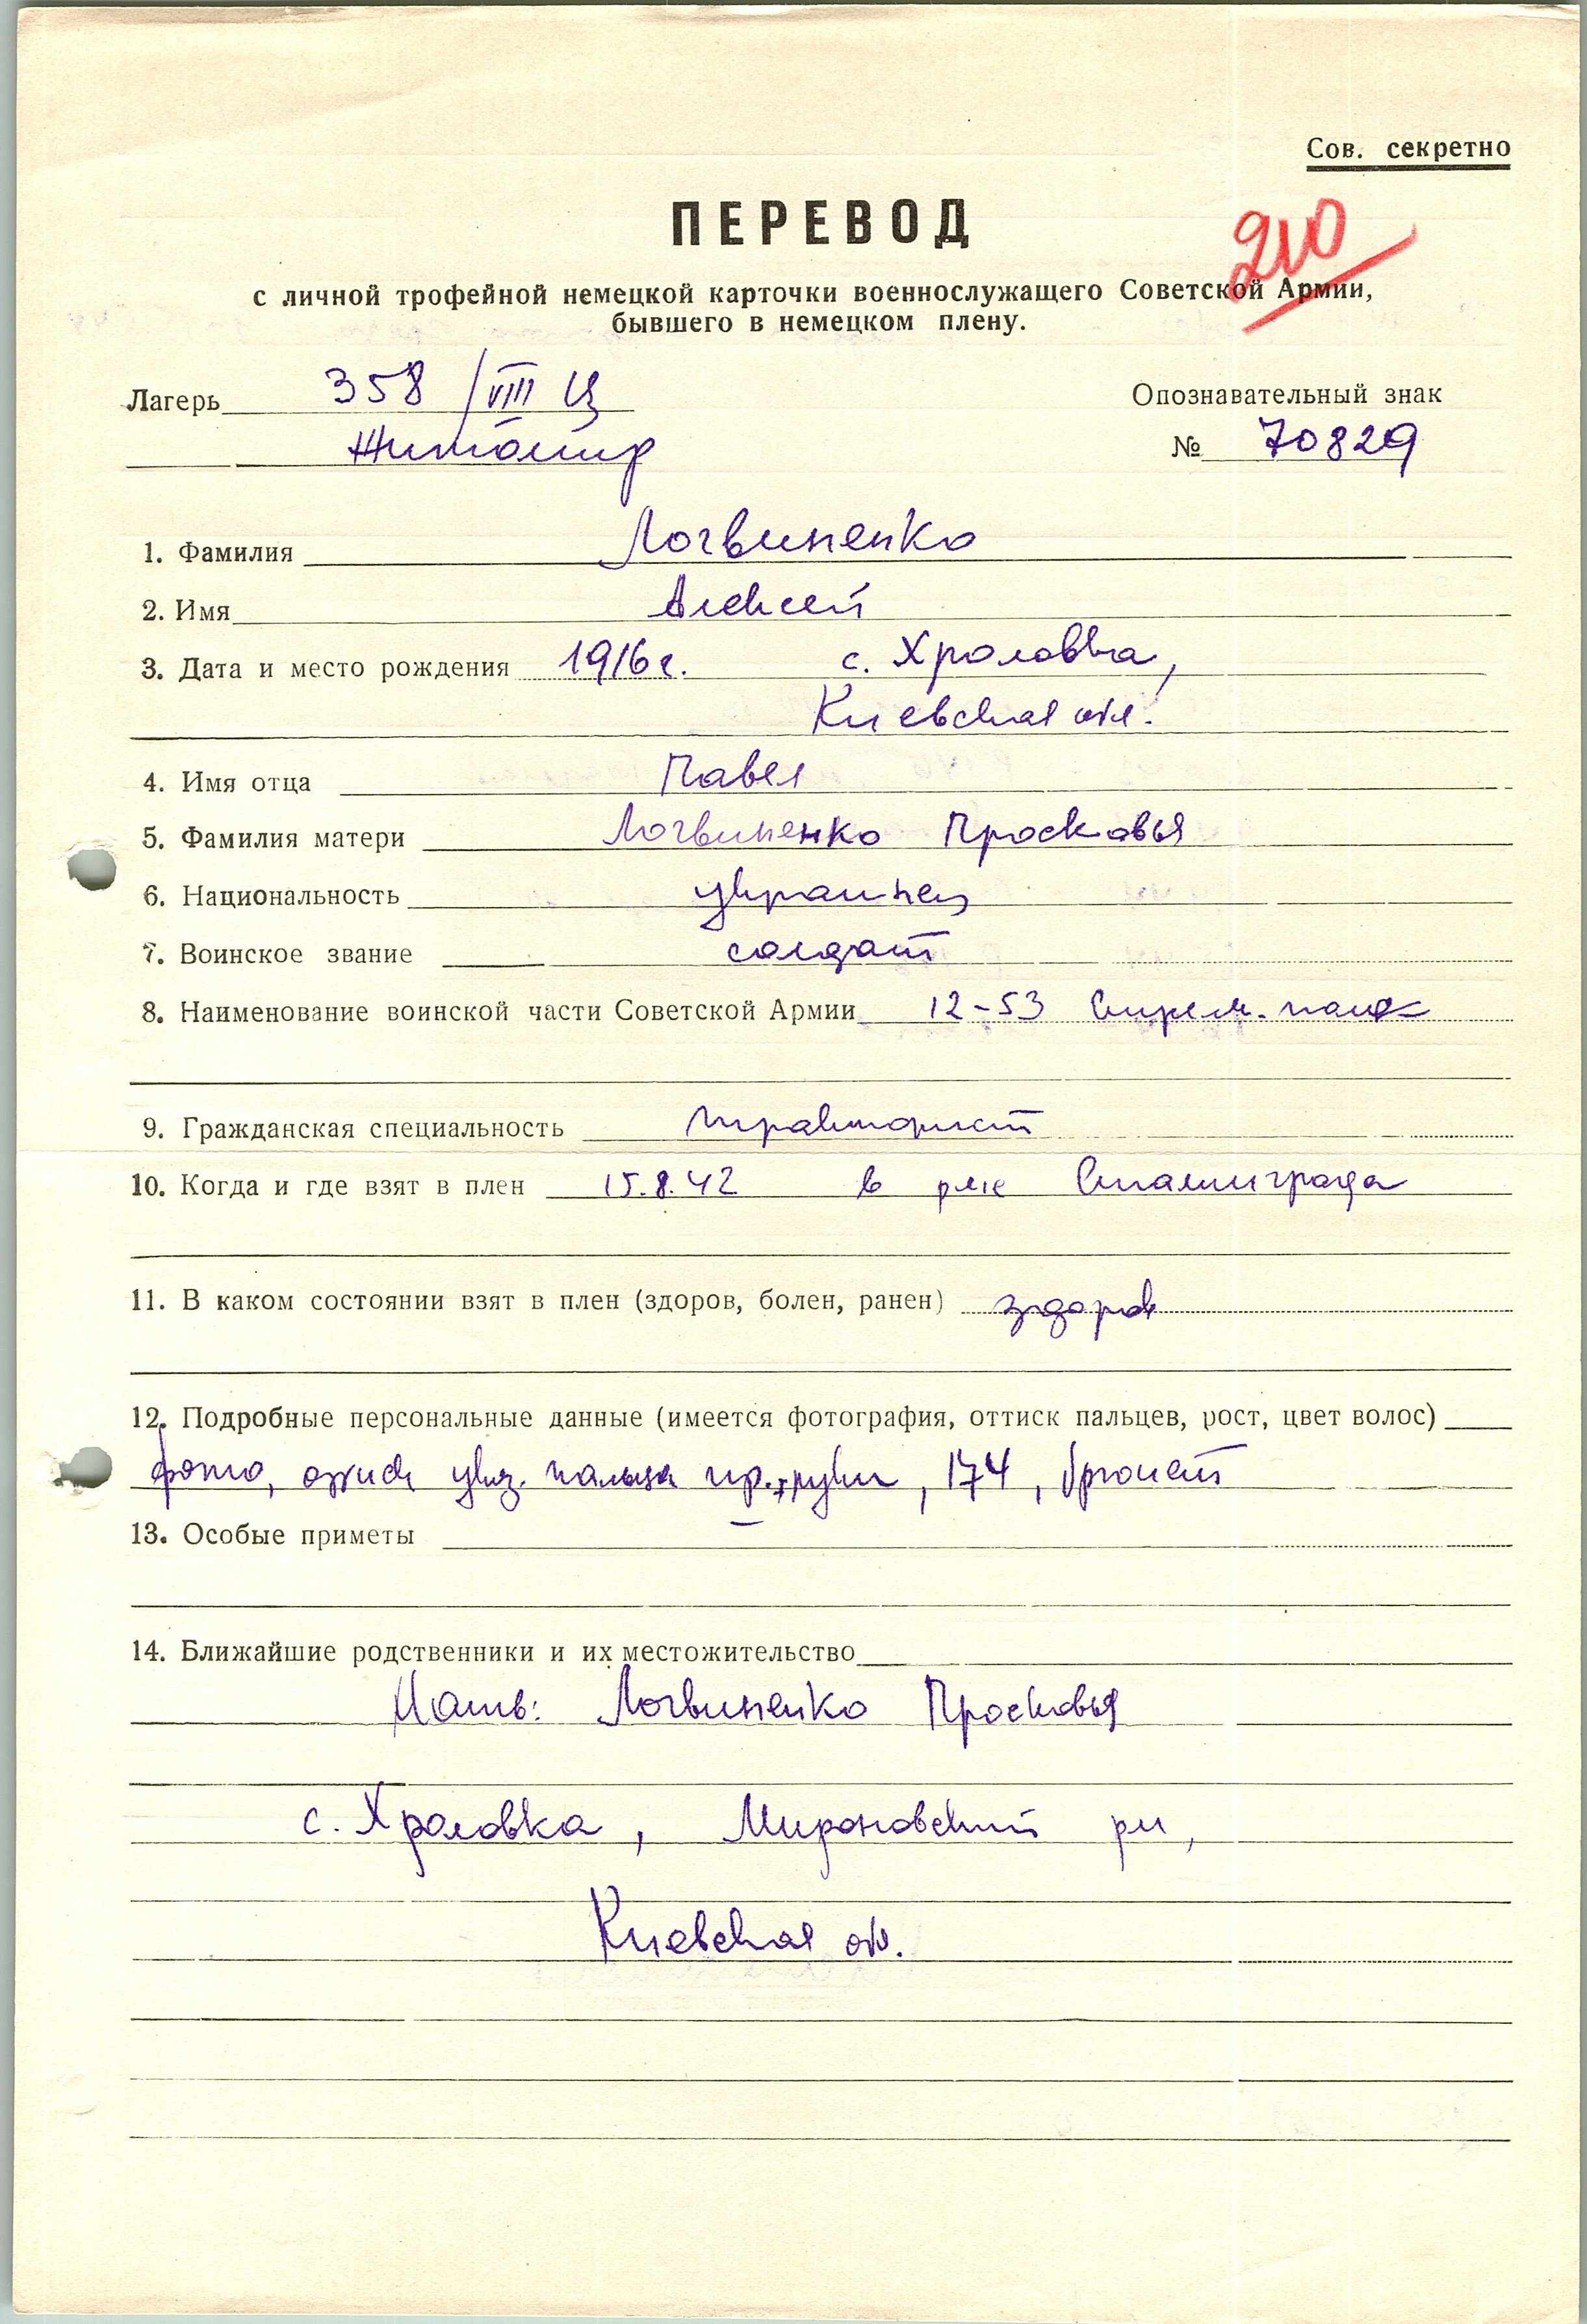 Сов. секретно
ПЕРЕВОД
210
с личной трофейной немецкой карточки военнослужащего Советской Армии,
бывшего в немецком плену.
Лагерь 358/VIII Ц
Житомир
Опознавательный знак
№ 70829
1. Фамилия Логвиненко
2. Имя Алексей
3. Дата и место рождения 1916 г. с. Хроловка,
Киевская обл.
4. Имя отца Павел
5. Фамилия матери Логвиненко Просковья
6. Национальность украинец
7. Воинское звание солдат
8. Наименование воинской части Советской Армии 12-53 стрелк. полк
9. Гражданская специальность тракторист
10. Когда и где взят в плен 15.8.42 в р-не Сталинграда
11. В каком состоянии взят в плен (здоров, болен, ранен) здоров
12. Подробные персональные данные (имеется фотография, оттиск пальцев, рост, цвет волос)
фото, указ. пальца пр. руки, 174, брюнет
13. Особые приметы –
14. Ближайшие родственники и их местожительство
Мать: Логвиненко Просковья
с. Хроловка, Мироновский рн,
Киевская обл.